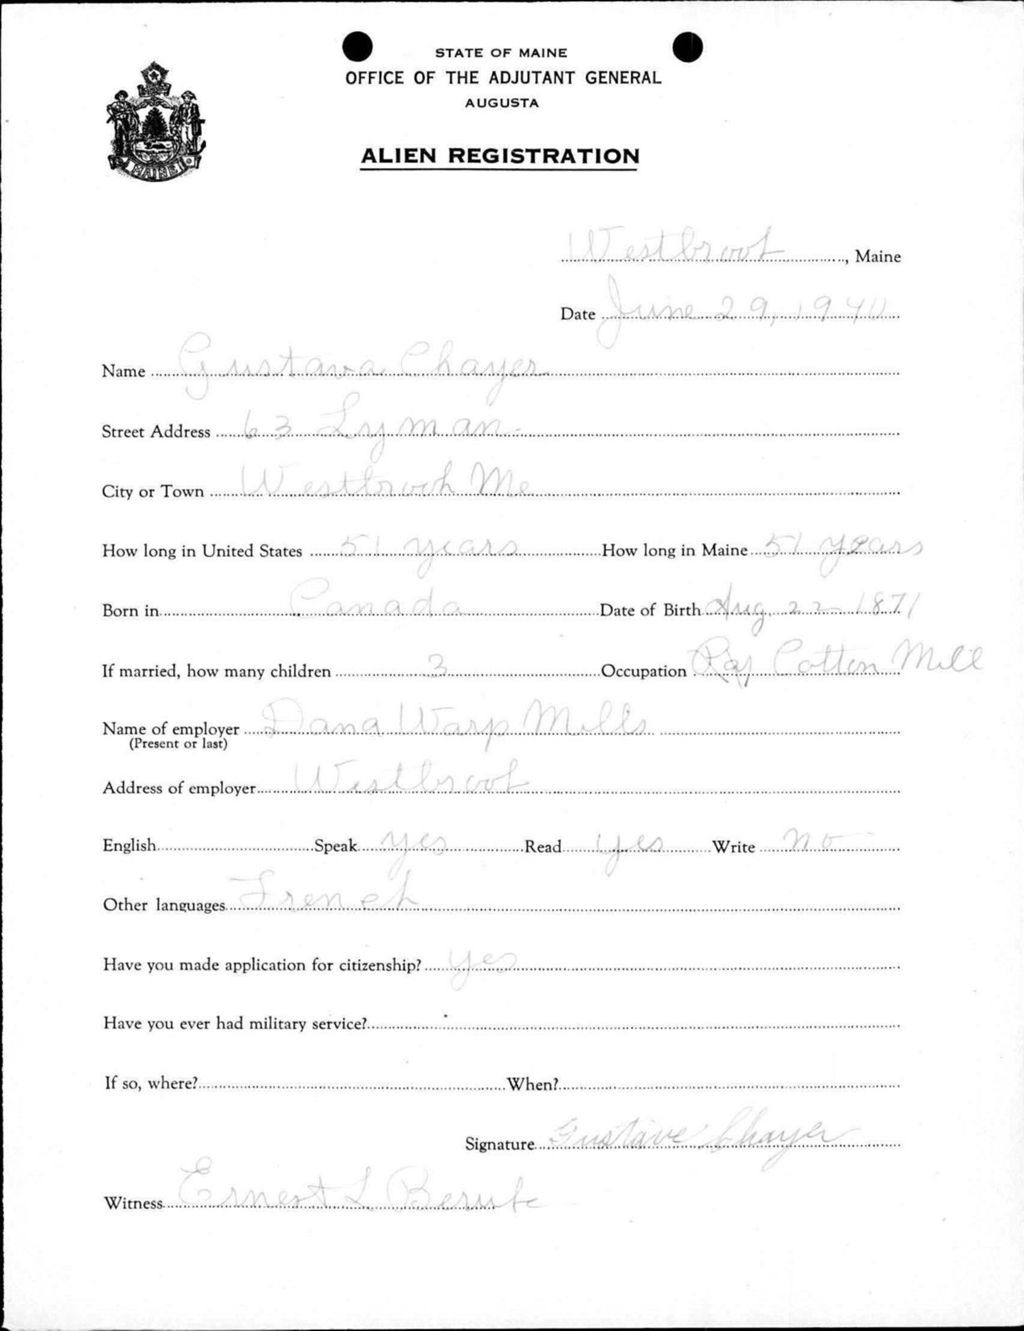 STATE OF MAINE
OFFICE OF THE ADJUTANT GENERAL
AUGUSTA
ALIEN REGISTRATION
MAINE
Westbrook, Maine
Date June 29, 1940
Name Gustava Chayer
Street Address 63 Lyman
City or Town Westbrook Me
How long in United States 51 years How long in Maine 51 years
Born in Canada Date of Birth Aug 22 1871
If married, how many children 3 Occupation Cotton Mill
Name of employer Dana Warp Mills
(Present or last)
Address of employer Westbrook
English Speak yes Read yes Write no
Other languages French
Have you made application for citizenship? yes
Have you ever had military service?
If so, where? When?
Signature Gustave Chayer
Witness Ernest L Berube